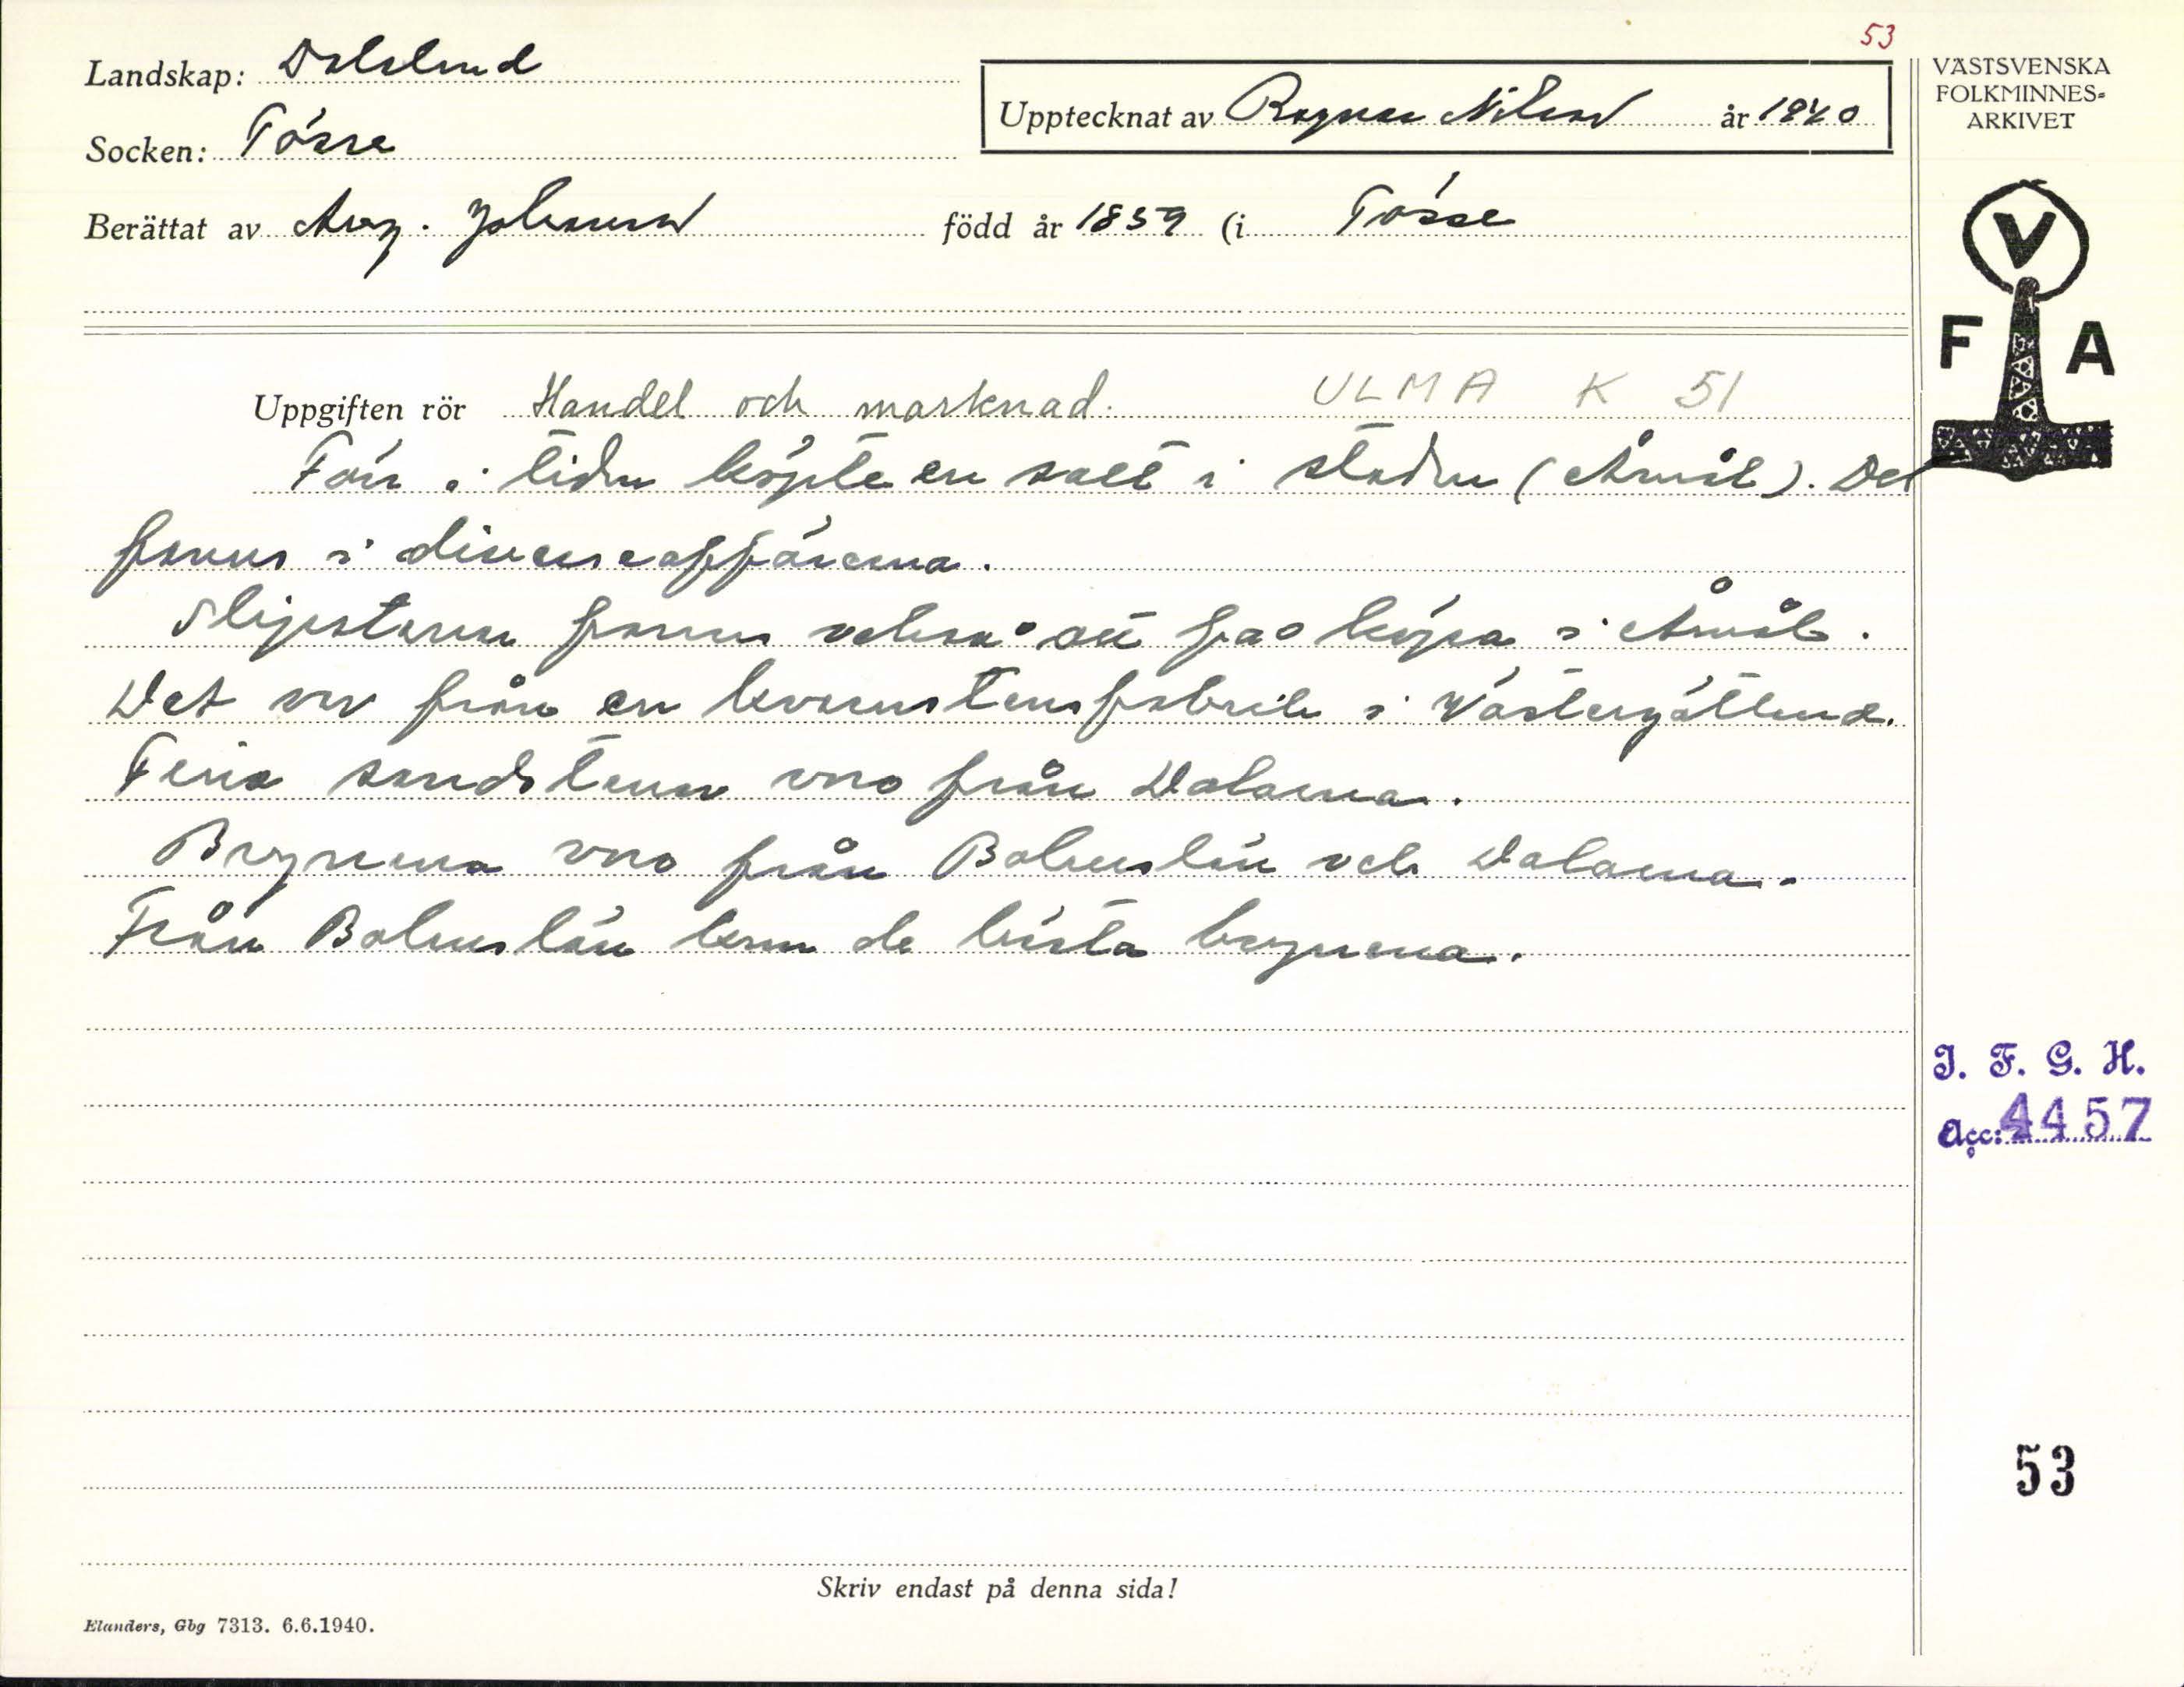 53
Landskap: Dalsland
Upptecknat av Ragnar Nilsson år 1940
VÄSTSVENSKA
FOLKMINNES=
ARKIVET
Socken: Tösse
Berättat av Aug. Johansson född år 1859 (i Tösse
V
F A
Uppgiften rör Handel och marknad. ULMA K 51
Förr i tiden köpte en salt i staden (Åmål). Det
fanns i diverseaffärerna.
Slipstenen fanns också att få köpa i Åmål.
Det var från en kvarnstensfabrik i Västergötland.
Fina sandstenar var från Dalarna.
Brynena var från Bohuslän och Dalarna.
Från Bohuslän kom de bästa brynena.
I. F. G. H.
Acc: 4457
53
Skriv endast på denna sida!
Elanders, Gbg 7313. 6.6.1940.